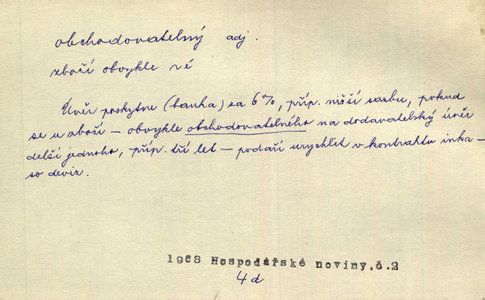 obchodovatelný adj.
zboží obvykle vé
Úvěr poskytne (banka) za 6%, příp. nižší sazbu, pokud
se u zboží – obvykle obchodovatelného na dodavatelský úvěr
delší jednoho, příp. tří let – podaří urychlit v kontraktu inka-
so deviz.
1968 Hospodářské noviny, č.2
4d